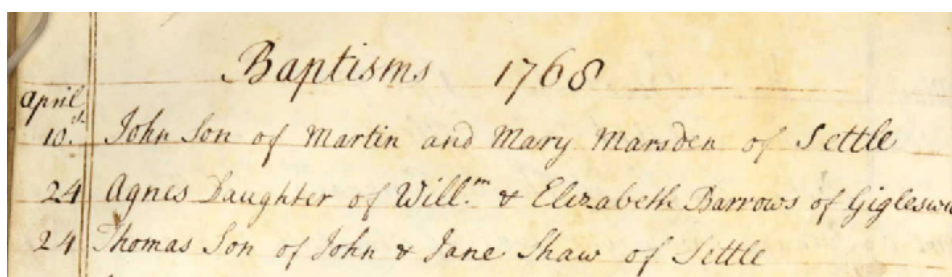 Baptisms 1768
April
10.th John Son of Martin and Mary Marsden of Settle
24 Agnes Daughter of Will.m & Elizabeth Barrows of Gigleswi
24 Thomas Son of John & Jane Shaw of Settle